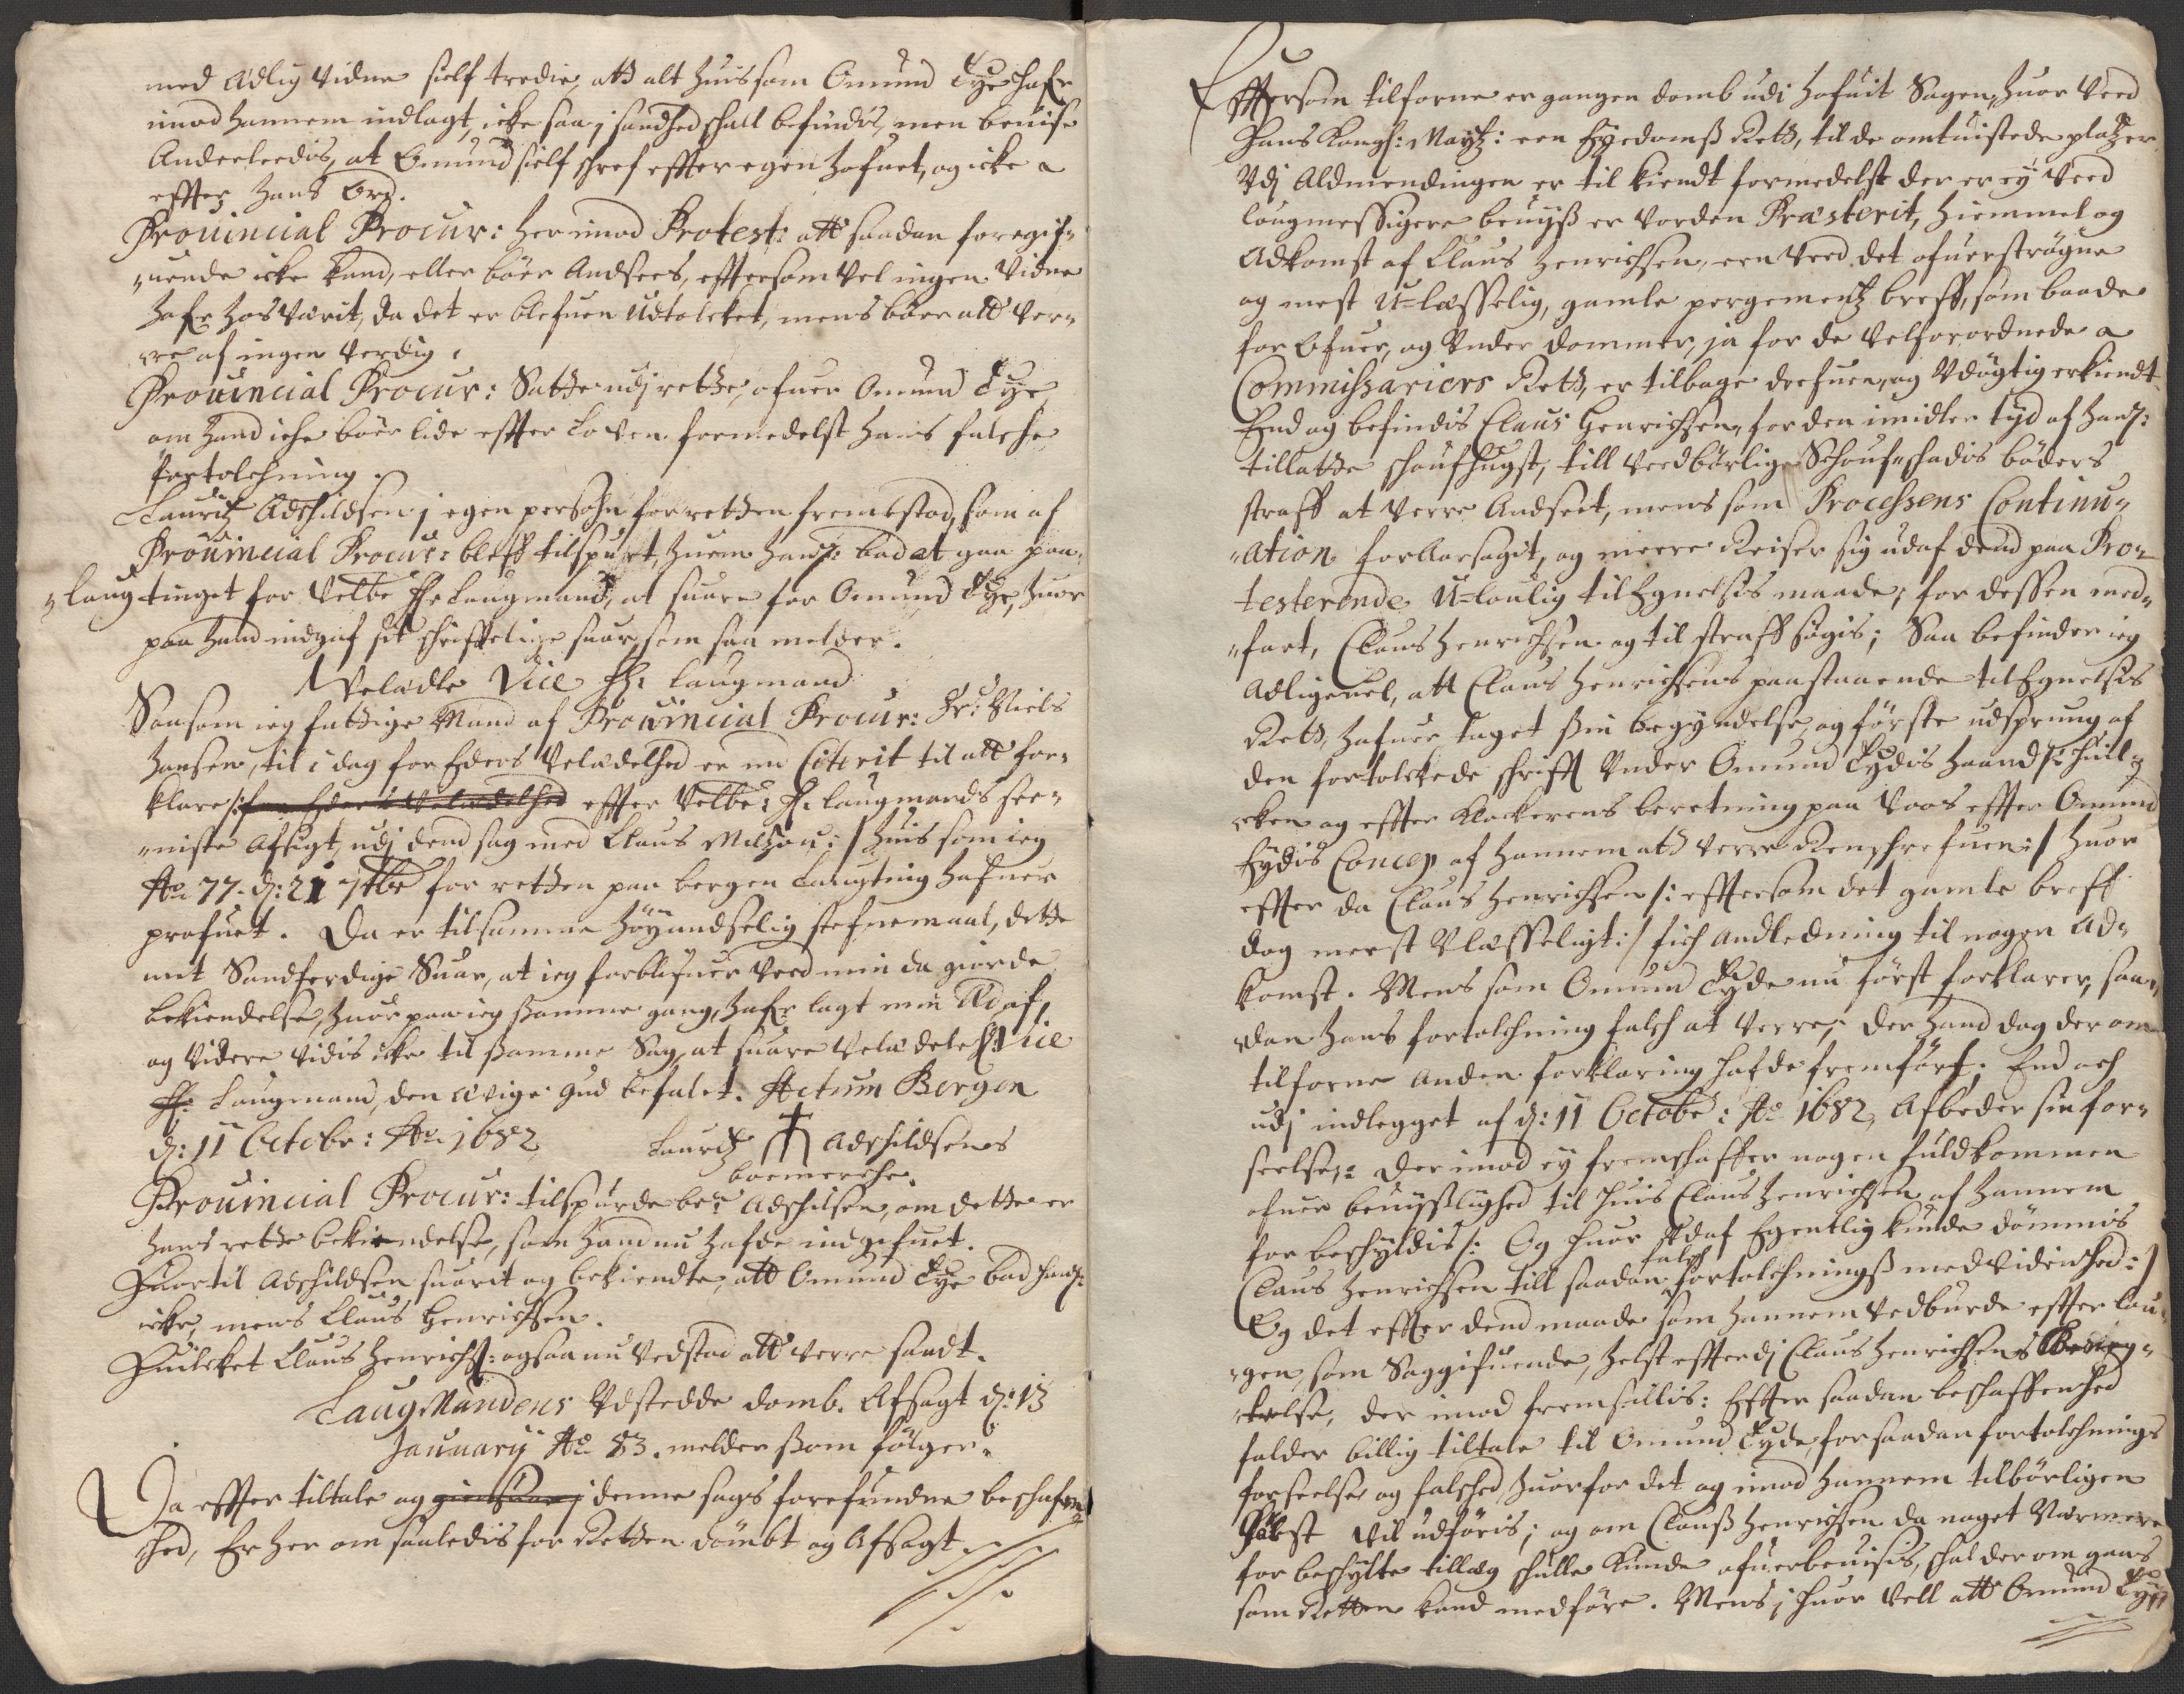 med Adlig vidne sielf tredie, att alt huis som Omund Tye hafr
imod hannem indlagt, icke saa i sandhed shall befindis, men beuise
Anderledis, at Omund sielf shref effter egen hofuet, og icke
effter hans Ord.
Prouincial Procur: her imod Protest: att saadan foregif„
„uende icke kand, eller böer Andsees, effttersom vel ingen vidne
hafr hos værit, da det er blefuen udtolcket, mens böer att ver„
„re af ingen verdig.
Prouincial Procur: Satte udj rette, ofuer Omund Tye,
om hand iche böer lide effter Loven formedelst hans falsche
fortolchning.
Lauritz Adschildsen j egen persohn for retten frembstod, som af
Prouincial Procur: bleff tilspurt, huem hans: bad at gaa paa
„Laugtinget for Velbr Hr Laugmand, at suare for Omund Tye, huor
paa hand indgaf sit schrifftelige suar, som saa melder.
Velædle Vice Hr: Laugmand
Saasom ieg fattige Mand af Prouincial Procur: Sr: Niels
Hansen, til i dag for Eders Velædelhed er nu Citerit til att for„
klare /: for Eders Velædelhed effter Velbr: Hr. Laugmands see„
„niste Afsigt, udj dend sag med Claus Miltzou :/ huis som ieg
Ao 77. d: 21 7tbr for retten paa bergen Laugting hafuer
profuet. Da er til samme höyandselig stefnemaal, dette
mit Sandferdige Suar, at ieg forblifuer ved min da giorde
bekiendelse, huor paa ieg samme gang, hafr lagt min Æd af,
og videre vidis icke til samme Sag, at suare Velædele Vice
Hr: Laugmand, den Ævige Gud befalet. Actum Bergen
d: 11 Octobr: Ao 1682 Lauritz Adschildsens
boemerche.
Prouincial Procur: tilspurde ber: Adschilsen, om dette er
hans rette bekiendelse, som hand nu hafde indgifuet.
Huortil Adschildsen suarit og bekiendte, att Omund Tye bad hans:
icke, mens Claus Henrichsen.
Huilcket Claus Henrichs: ogsaa nu vedstod att verre sandt.
LaugMandens Udstedde domb. Afsagt d: 13
January Ao 83. melder som fölger.
Da effter tiltale og giensuar j denne sags forefundne beschafen„
„hed, Er her om saaledis for Retten dömbt og Afsagt
Efftersom tilforne er gangen domb udj hofuit Sagen, huor ved
Hans Kongl: Maytz: een Eyedomß Rett, til de omtuistede platzer
Udj Aldmendingen er til kiendt formedelst der er ey ved
lougmessigere beuyß er vorden Præsterit, Hiemmel og
Adkomst af Claus Henrichsen, een ved det ofuerströgne
og mest U=læsselig, gamle pergementz breff, som baade
for Ofuer, og Under dommer, ja for de Velforordnede
Commissariers Rett, er tilbage drefuen, og Udygtig erkiendt
End og befindis Claus Henrichsen, for den imidler tyd af hans:
tillatte schoufhugst, till vedbörlige Schouf„shadis böders
straff at verre Andseet, mens som Processens Continu„
„ation forAarsagit, og meere Reiser sig udaf dend paa Pro„
testerende U=loulig tilEgnelsis maade, for dessen med„
„fart, Claus Henrichsen og til straff søgis; Saa befinder ieg
Adligeuel, att Claus Henrichsens paastaaende tilEgnelsis
Rett, hafuer taget sin begyndelse, og förste udspruug af
den fortolckede schrifft Under Omund Tydis Haand /: huil„
„cken og effter Klockerens beretning paa Voss effter Omund
Tydis Concep af hannem att verre Renschrefuen :/ huor
effter da Claus Henrichsen /: efftersom det gamle breff
dog meest Ulæsseligt :/ fich Andledning til nogen Ad„
komst. Mens som Omund Tyde nu först forklarer, saa„
„dan hans fortolchning falsch at verre, der hand dog der om
tilforne anden forklaring hafde fremfört. End och
udj indlegget af d: 11 Octobr: Ao 1682, Afbeder sin for„
seelse, /: der imod ey fremschaffer nogen fuldkommen
ofuer beuysslighed til huis Claus Henrichsen af hannem
for beschyldis /: Og huor udaf Egentlig kunde dömmis
falsch
Claus Henrichsen till saadan fortolchningß medvidenhed :/
Og det effter dend maade som hannem vedburde effter Lau„
„gen, som Saggifuende, helst effterdj Claus Henrichsens
„kelse, der imod fremstillis: Effter saadan beschaffenhed
falder billig tiltale til Omund Tyde, for saadan fortolchnings
forseelse og falsched, huorfor det og imod hannem tilbörligen
vil udföris; og om Clauß Henrichsen da noget Nærmere
for beschylte tillæg schulle kunde ofuerbeuisis, schal der om gaaes
som Retten kand medföre. Mens i huor vell att Omund Tye